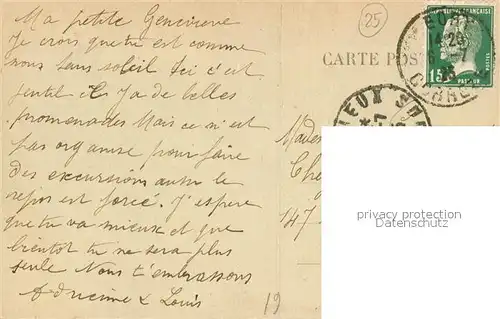 Ma petite Genevieve
Je crois que tu est comme
nous sans soleil Ici c'est
gentil il y a de belles
promenades Mais ce n'est
pas organisé pour faire
des excursions aussi le
repos est forcé. J'espère
que tu va mieux et que
bientot tu ne sera plus
seule Nous t'embrassons
& Louis
25
CARTE POS
RÉPUBLIQUE FRANÇAISE
POSTES
15
PASTEUR
14 25
CORRÈ
IEUX
Mades
Che
147
19
privacy protection
Datenschutz